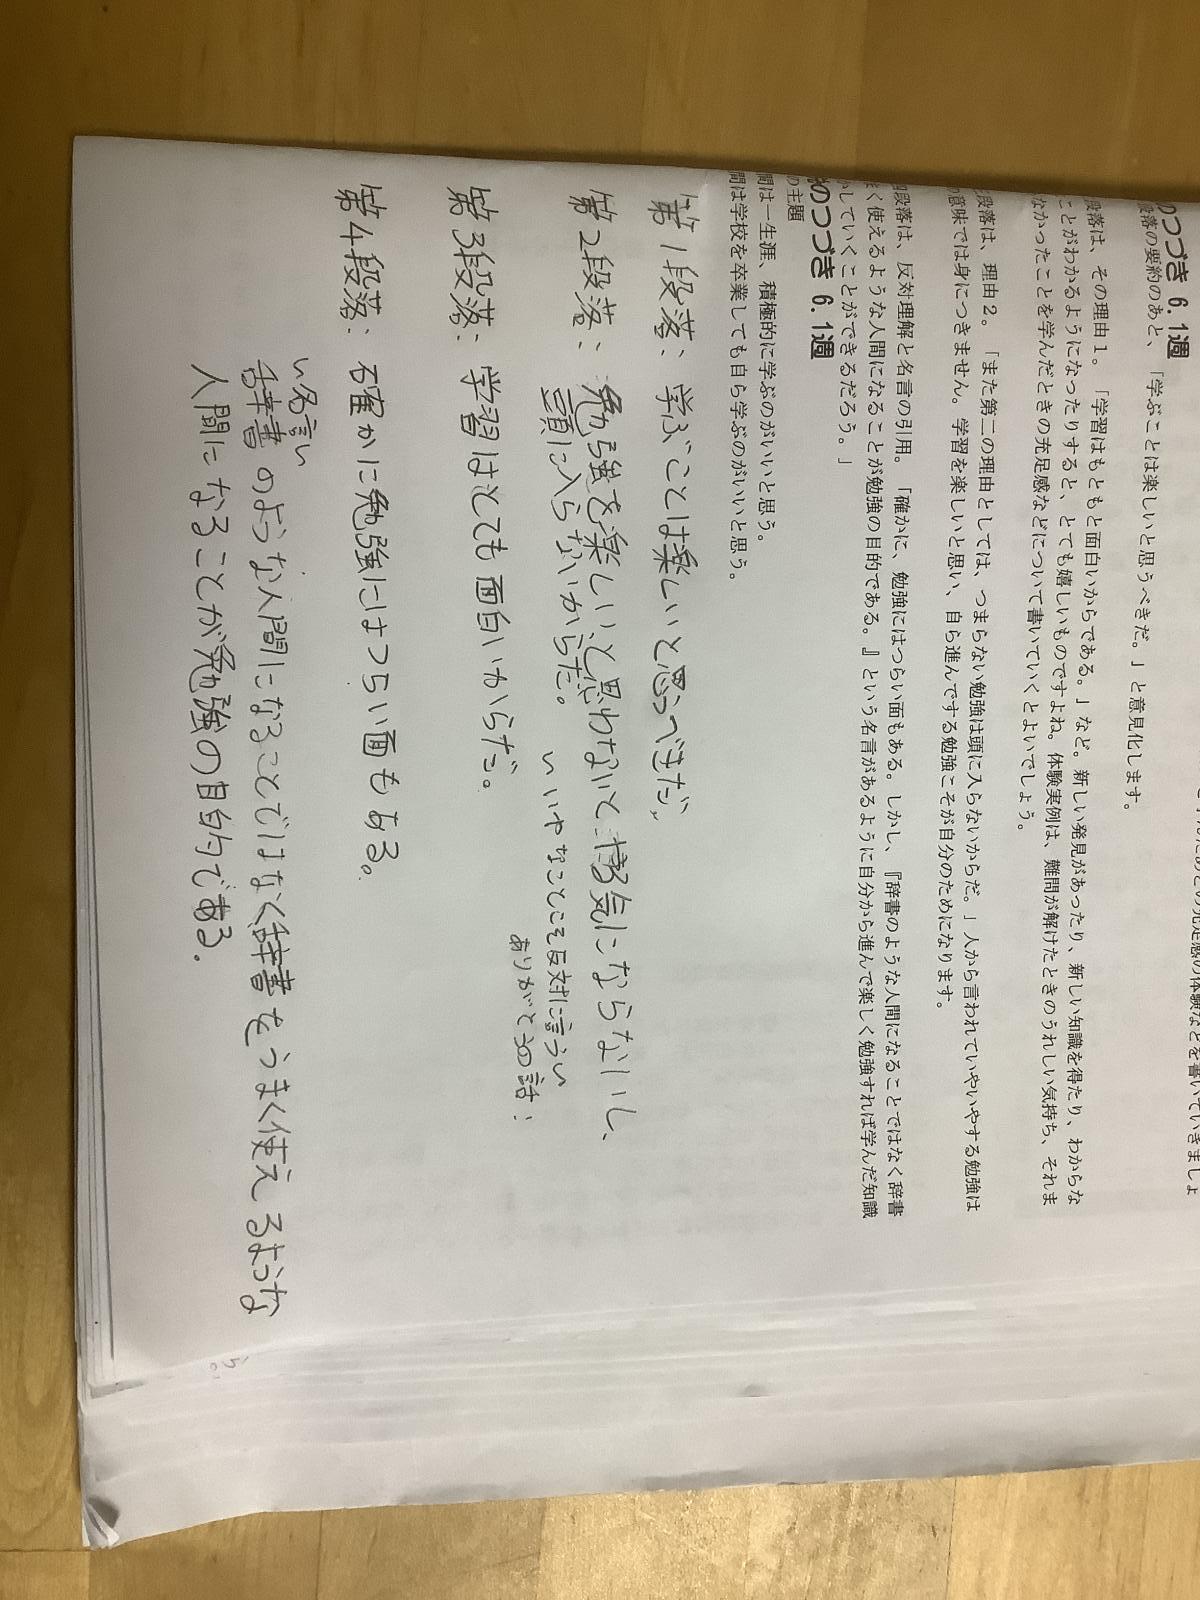 のつづき 6.1週
段落の要約のあと、「学ぶことは楽しいと思うべきだ。」と意見化します。
段落は、その理由１。「学習はもともと面白いからである。」など。新しい発見があったり、新しい知識を得たり、わからな
ことがわかるようになったりすると、とても嬉しいものですよね。体験実例は、難問が解けたときのうれしい気持ち、それま
なかったことを学んだときの充足感などについて書いていくとよいでしょう。
段落は、理由２。「また第二の理由としては、つまらない勉強は頭に入らないからだ。」人から言われていやいやする勉強は
意味では身につきません。学習を楽しいと思い、自ら進んでする勉強こそが自分のためになります。
段落は、反対理解と名言の引用。「確かに、勉強にはつらい面もある。しかし、『辞書のような人間になることではなく辞書
く使えるような人間になることが勉強の目的である。』という名言があるように自分から進んで楽しく勉強すれば学んだ知識
かしていくことができるだろう。」
のつづき 6.1週
の主題
間は一生涯、積極的に学ぶのがいいと思う。
間は学校を卒業しても自ら学ぶのがいいと思う。
第1段落：学ぶことは楽しいと思うべきだ、
第2段落：勉強を楽しいと思わないとやる気にならないし、
頭に入らないからだ。
いいやなことこそ反対に言うい
ありがとうの話：
第3段落：学習はとても面白いからだ。
第4段落：確かに勉強にはつらい面もある。
い名言い
辞書のような人間になることではなく辞書をうまく使えるような
人間になることが勉強の目的である.